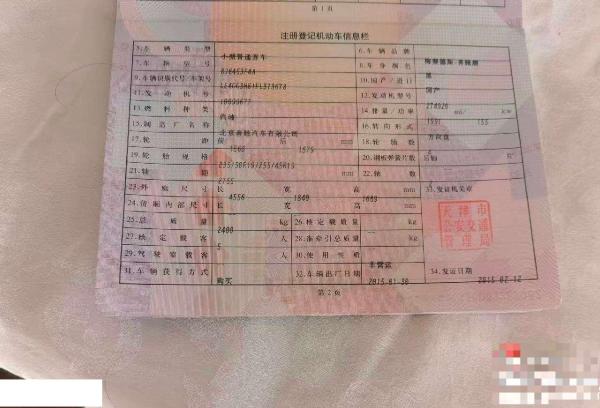 第1页
注册登记机动车信息栏
5.车辆类型 小型普通客车 6.车辆品牌 梅赛德斯-奔驰牌
7.车辆型号 8.车身颜色 黑
9.车辆识别代号/车架号 10.国产/进口 国产
11.发动机号 12.发动机型号 274920
13.燃料种类 汽油 14.排量/功率 1991 ml 155 kw
15.制造厂名称 北京奔驰汽车有限公司 16.转向形式 方向盘
17.轮距 前 后 1575 mm 18.轮胎数
19.轮胎规格 235/50R19/255/45R19 20.钢板弹簧片数 后轴
21.轴距 2755 mm 22.轴数
23.外廓尺寸 长 4556 宽 1840 高 mm 33.发证机关章
24.货厢内部尺寸 长 宽 高 mm
天津市
公安交通
管理局
25.总质量 2400 kg 26.核定载质量 kg
27.核定载客 5 人 28.准牵引总质量 kg
29.驾驶室载客 人 30.使用性质 非营运 34.发证日期
31.车辆获得方式 购买 32.车辆出厂日期 2015-01-30 2015-02-12
第2页